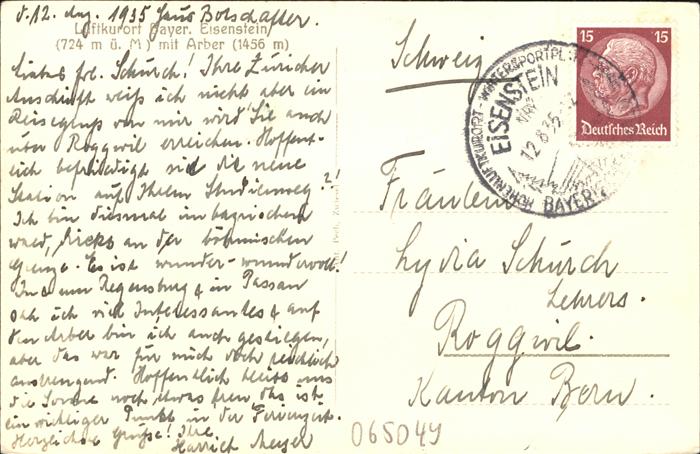 d. 12. Aug. 1935 Haus Botschafter.
Luftkurort Bayer. Eisenstein
(724 m ü. M) mit Arber (1456 m)
Liebes frl. Schürch! Ihre Züricher
Anschrift weiß ich nicht aber ein
Reisegruss von mir wird Sie auch
über Roggwil erreichen. Hoffent-
lich befriedigt sie die neue
Station auf Ihrem Studienweg?!
Ich bin diesmal im bayrischen
wald, direkt an der böhmischen
Grenze. Es ist wunder-wundervoll!
In Regensburg & in Passau
sah ich viel Interessantes & auf
den Arber bin ich auch gestiegen,
aber das war für mich doch reichlich
anstrengend. Hoffentlich bleibt uns
die Sonne noch etwas treu das ist
ein wichtiger Punkt in der Ferienzeit.
Herzliche Grüße! Ihre
Meyer
Schweiz
15 15
Deutsches Reich
HÖHENLUFTKURORT - WINTERSPORTPL
EISENSTEIN
12.8.35
BAYER
Fräulein
Lydia Schürch
Lehrers.
Roggwil.
Kanton Bern.
065049